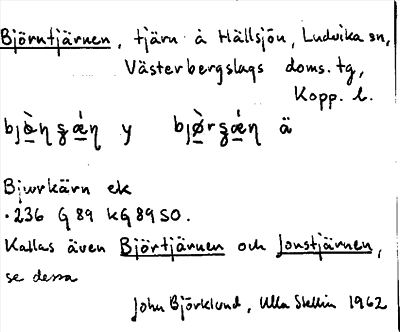 Björntjärnen, tjärn å Hällsjön, Ludvika sn,
Västerbergslags doms. tg,
Kopp. l.
y ä
Bjurkärn ek
·236 G 89 kG 89 SO.
Kallas även Björtjärnen och Jonstjärnen,
se dessa
John Björklund, Ulla 1962